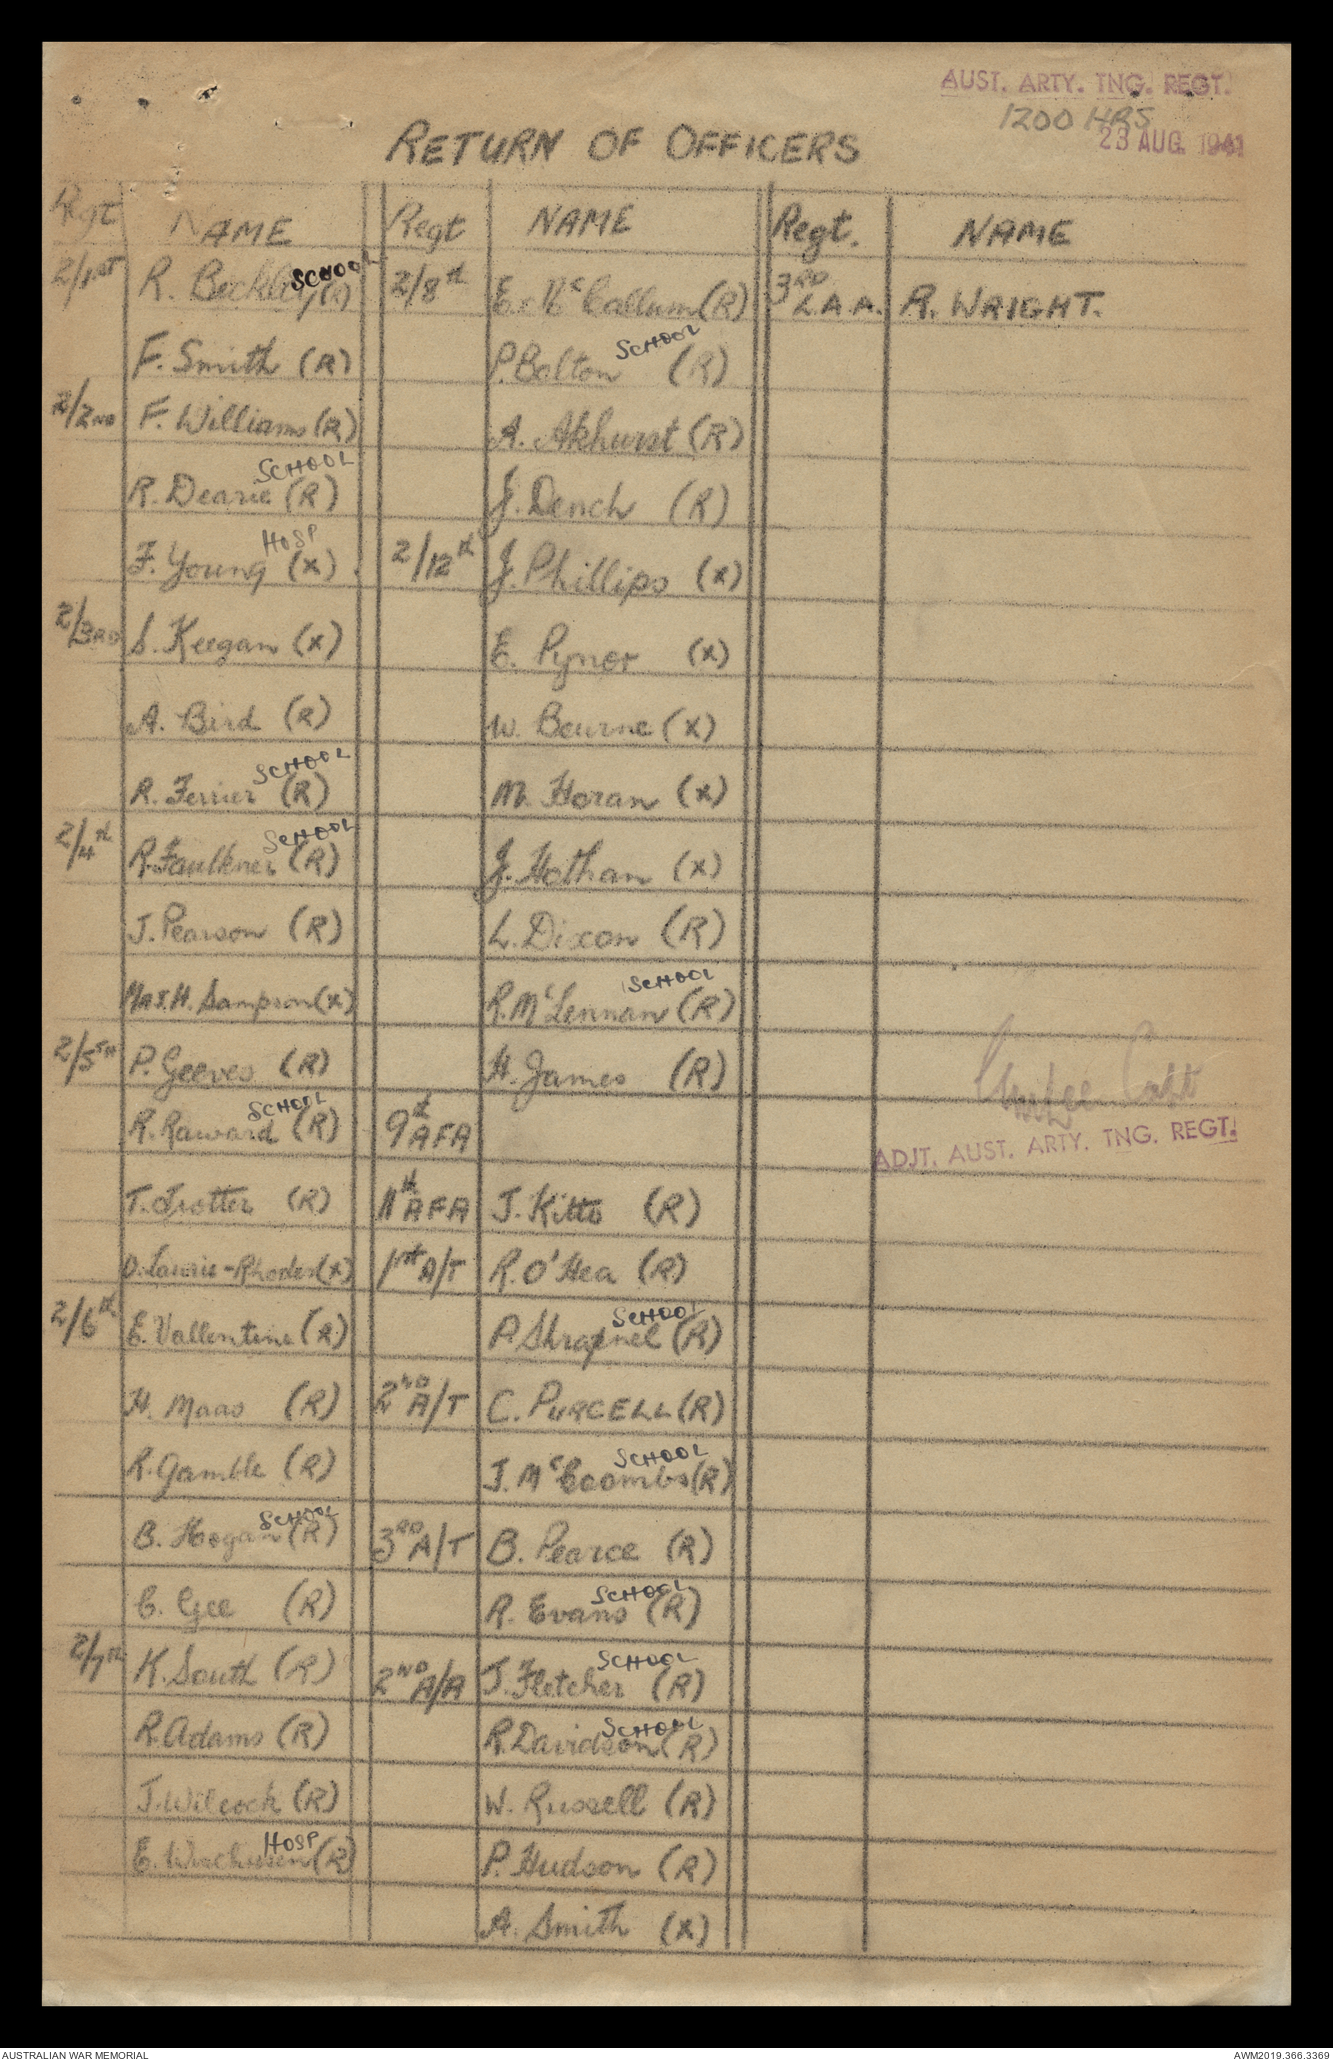 AUST. ARTY. TNG. REGT.
1200 HRS
23 AUG. 1941
RETURN OF OFFICERS
Regt NAME Regt NAME Regt. NAME
2/1ST R. Beckley (R) SCHOOL 2/8th E. McCallum (R) 3RD L.A.A. R. WRIGHT.
F. Smith (R) P. Bolton SCHOOL (R)
2/2ND F. Williams (R) A. Akhurst (R)
R. Dearie SCHOOL (R) J. Dench (R)
F. Young HOSP (X) 2/12th J. Phillips (X)
2/3RD S. Keegan (X) E. Pynor (X)
A. Bird (R) W. Bourne (X)
R. Ferrier SCHOOL (R) M. Horan (X)
2/4th R. Faulkner SCHOOL (R) J. Hothan (X)
J. Pearson (R) L. Dixon (R)
MAJ. H. Sampson (X) R. McLennan SCHOOL (R)
2/5TH P. Geeves (R) H. James (R)
R. Raward SCHOOL (R) 9th AFA
ADJT. AUST. ARTY. TNG. REGT.
T. Trotter (R) 11th AFA J. Kitto (R)
D. Laurie-Rhodes (X) 1st A/T R. O'Hea (R)
2/6th E. Vallentine (R) P. Shrapnel SCHOOL (R)
H. Maas (R) 2ND A/T C. PURCELL (R)
R. Gamble (R) J. McCoombs SCHOOL (R)
B. Hogan SCHOOL (R) 3RD A/T B. Pearce (R)
C. Gee (R) R. Evans SCHOOL (R)
2/7th K. South (R) 2ND A/A J. Fletcher SCHOOL (R)
R. Adams (R) R. Davidson SCHOOL (R)
J. Wilcock (R) W. Russell (R)
E. HOSP (R) P. Hudson (R)
A. Smith (X)
AUSTRALIAN WAR MEMORIAL AWM2019.366.3369